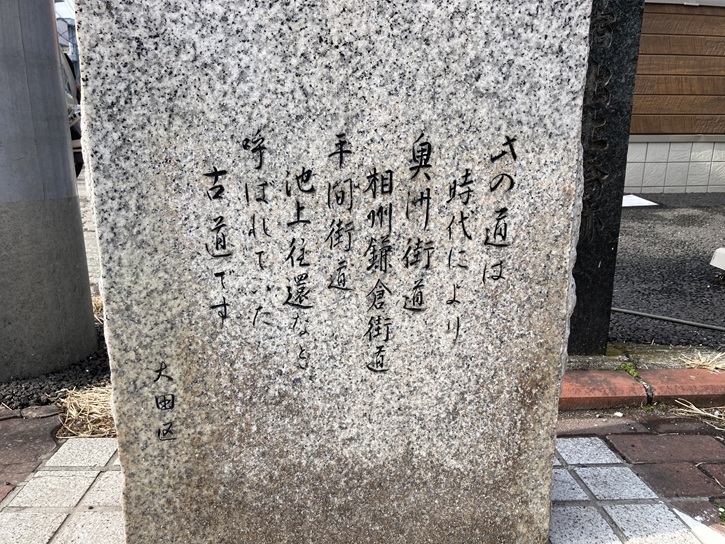 此の道は
時代により
奥州街道
相州鎌倉街道
平間街道
池上往還などと
呼ばれていた
古道です
大田区